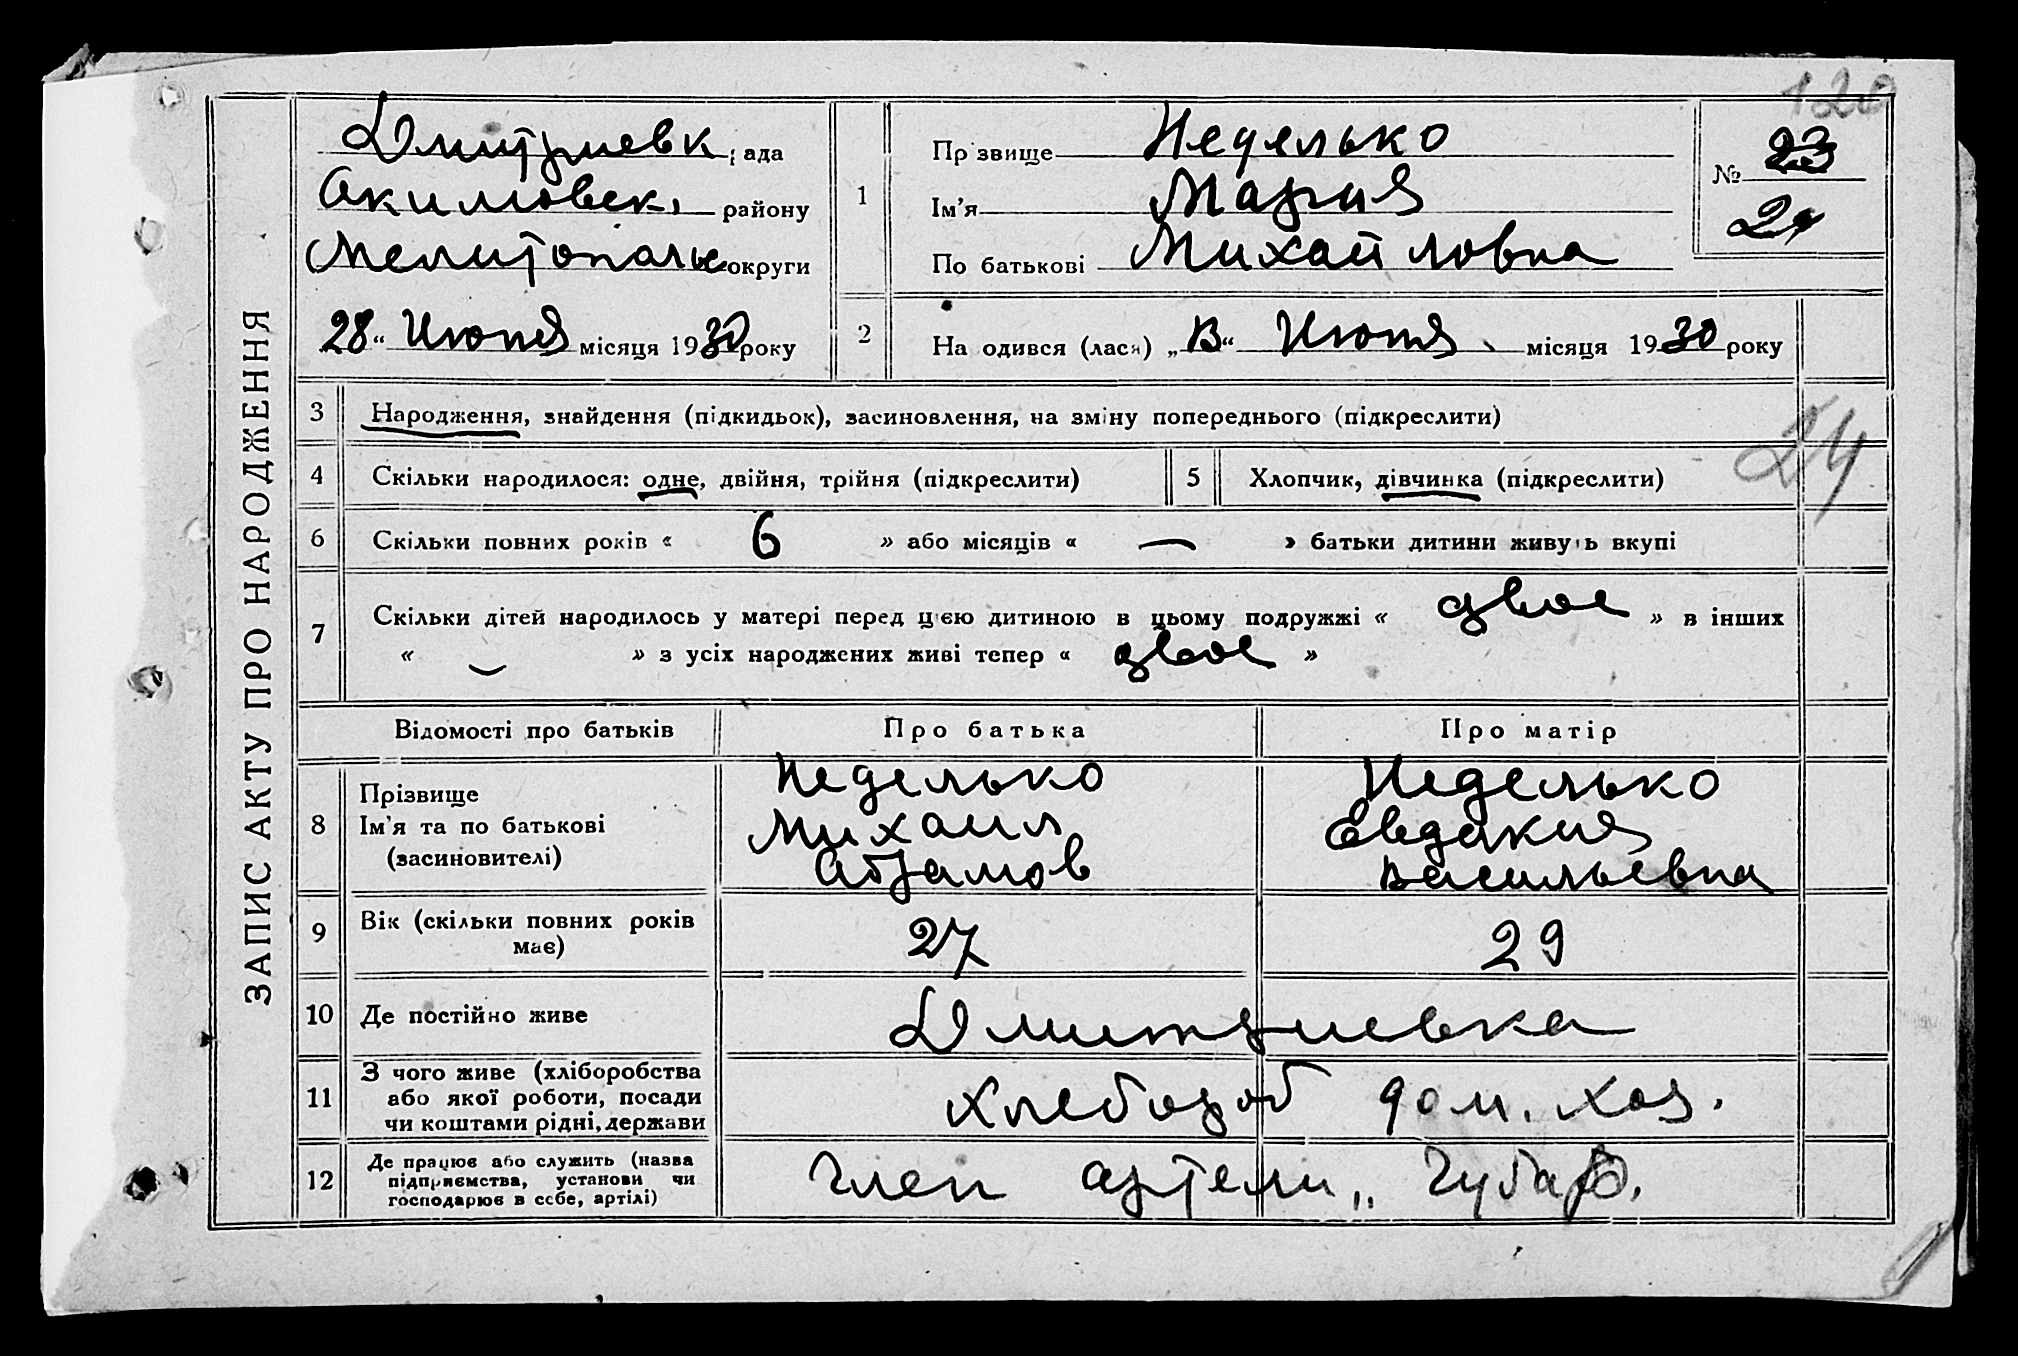 120
ЗАПИС АКТУ ПРО НАРОДЖЕННЯ
Дмитриевк рада
Акимовск. району
Мелитопольс округи
28 “ Июня місяця 1930 року
1
Прізвище Неделько
Ім'я Мария
По батькові Михайловна
№ 23
24
2
На одився (лася) „ “ Июня місяця 1930 року
3 Народження, знайдення (підкидьок), засиновлення, на зміну попереднього (підкреслити)
4 Скільки народилося: одне, двійня, трійня (підкреслити)
5 Хлопчик, дівчинка (підкреслити)
24
6 Скільки повних років « 6 » або місяців « — » батьки дитини живуть вкупі
7 Скільки дітей народилось у матері перед цією дитиною в цьому подружжі « двое » в інших
« — » з усіх народжених живі тепер « двое »
Відомості про батьків Про батька Про матір
8 Прізвище
Ім'я та по батькові
(засиновителі)
Неделько
Михаил
Абрамов
Неделько
Евдакия
Васильевна
9 Вік (скільки повних років
має)
27
29
10 Де постійно живе Дмитриевка
11 З чого живе (хліборобства
або якої роботи, посади
чи коштами рідні, держави
хлебороб дом. хоз.
12 Де працює або служить (назва
підприємства, установи чи
господарює в себе, артілі)
член артели „